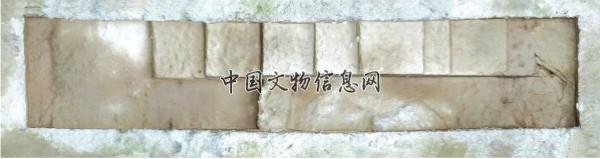 中国文物信息网